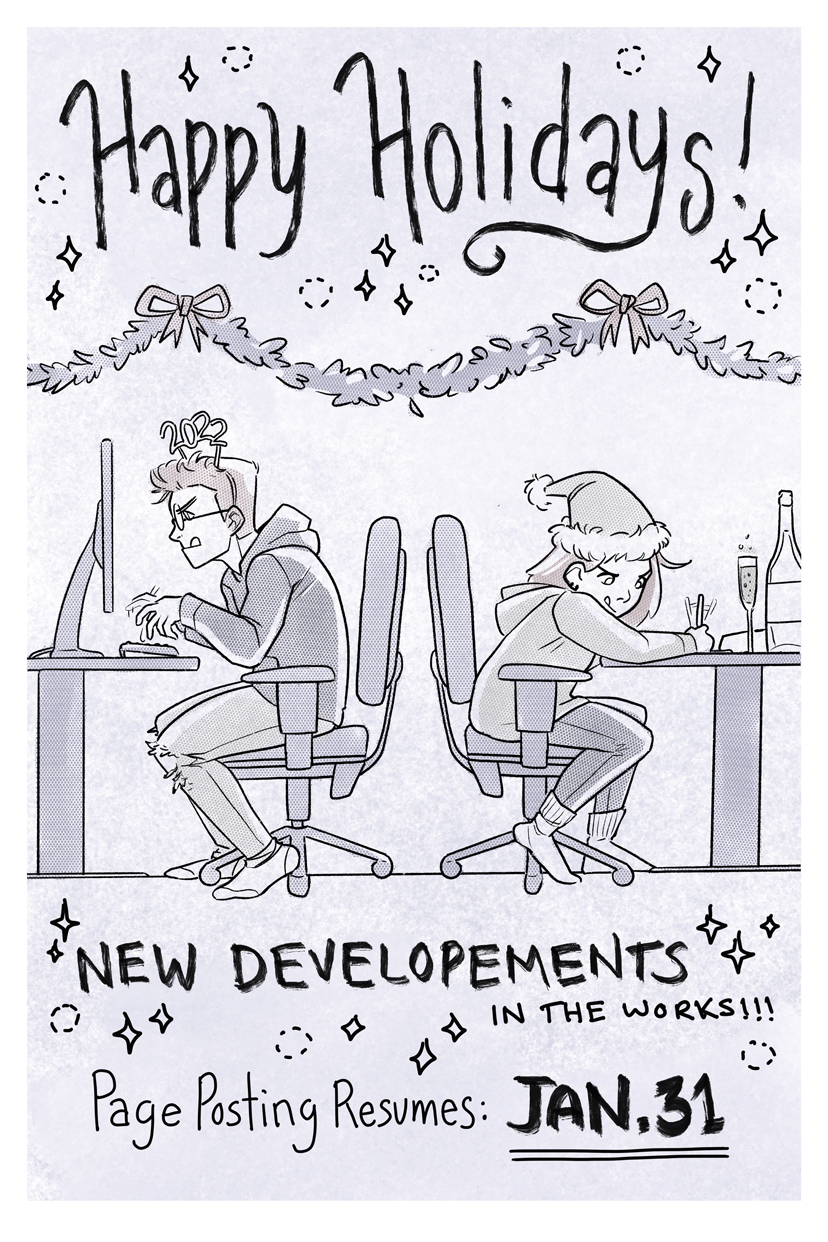 Happy Holidays!
2022
NEW DEVELOPEMENTS
IN THE WORKS!!!
Page Posting Resumes: JAN.31